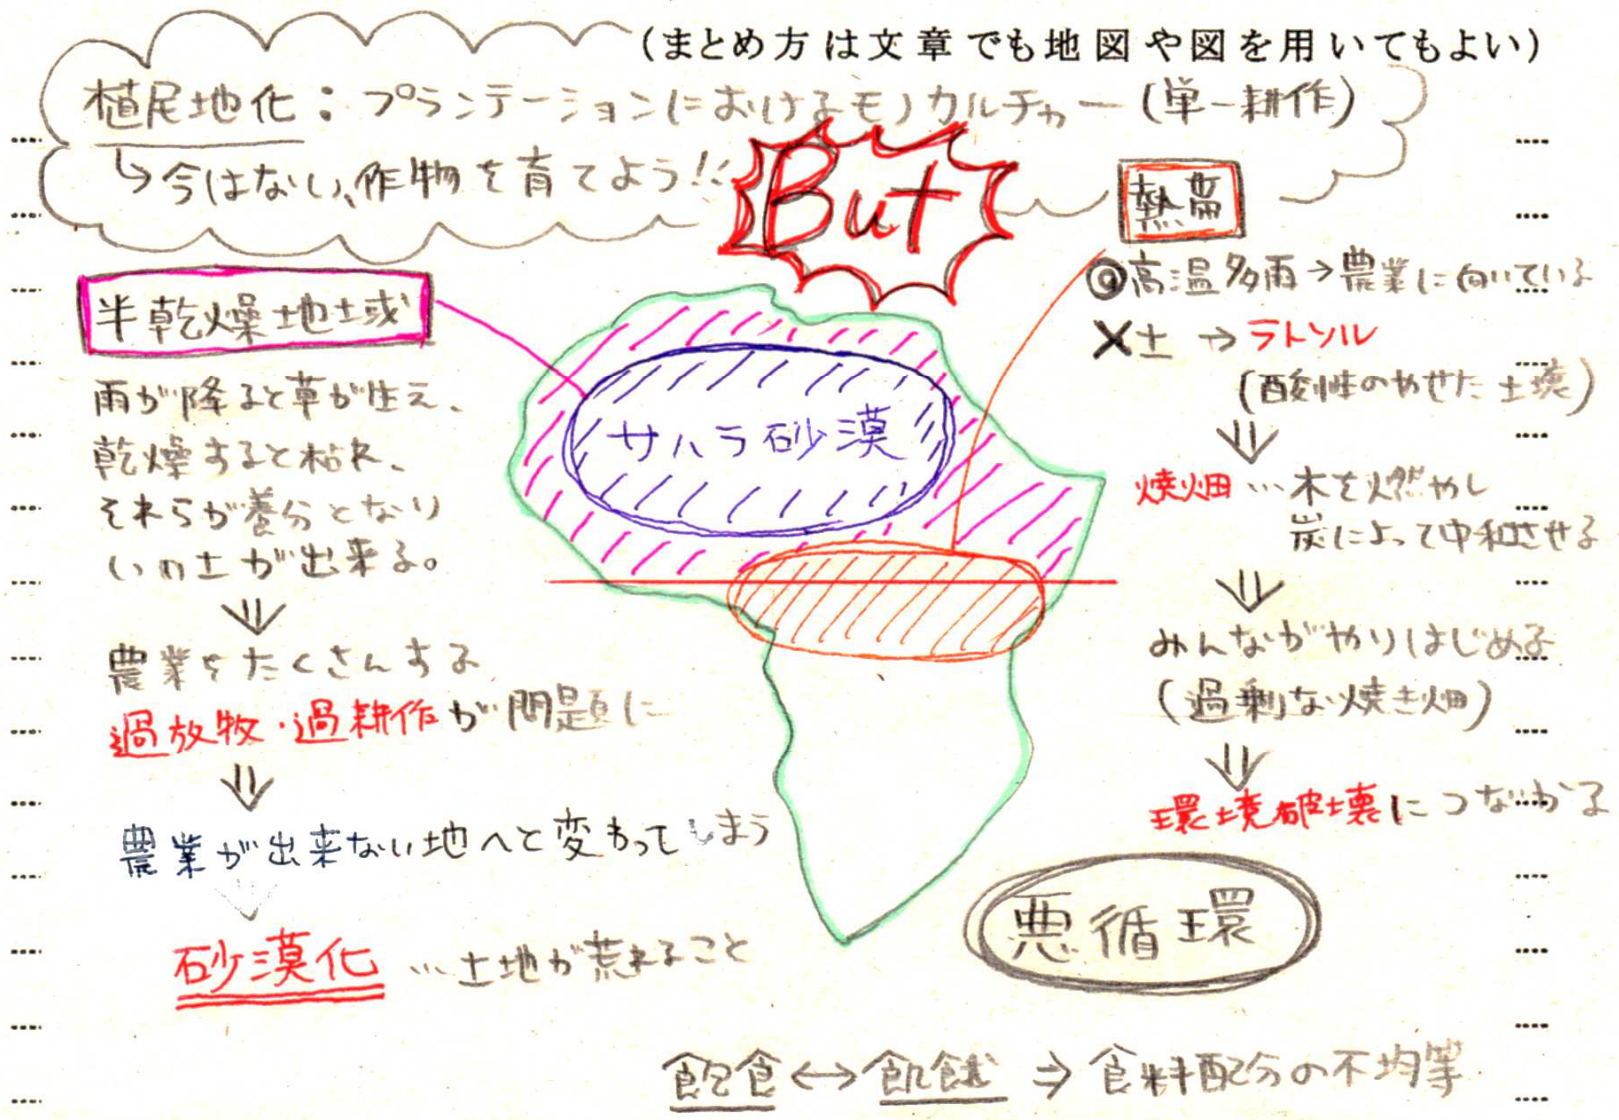 (まとめ方は文章でも地図や図を用いてもよい)
植民地化:プランテーションにおけるモノカルチャー(単一耕作)
↳今はない、作物を育てよう!!
But
熱帯
◎高温多雨→農業に向いている
×土→ラトソル
(酸性のやせた土壌)
⇓
焼畑…木を燃やし
炭によって中和させる
⇓
みんながやりはじめる
(過剰な焼き畑)
⇓
環境破壊につながる
半乾燥地域
雨が降ると草が生え、
乾燥すると枯れ、
それらが養分となり
いい土が出来る。
⇓
農業をたくさんする
過放牧・過耕作が問題に
⇓
農業が出来ない地へと変わってしまう
⇓
砂漠化…土地が荒れること
サハラ砂漠
悪循環
飽食↔飢餓⇒食料配分の不均等